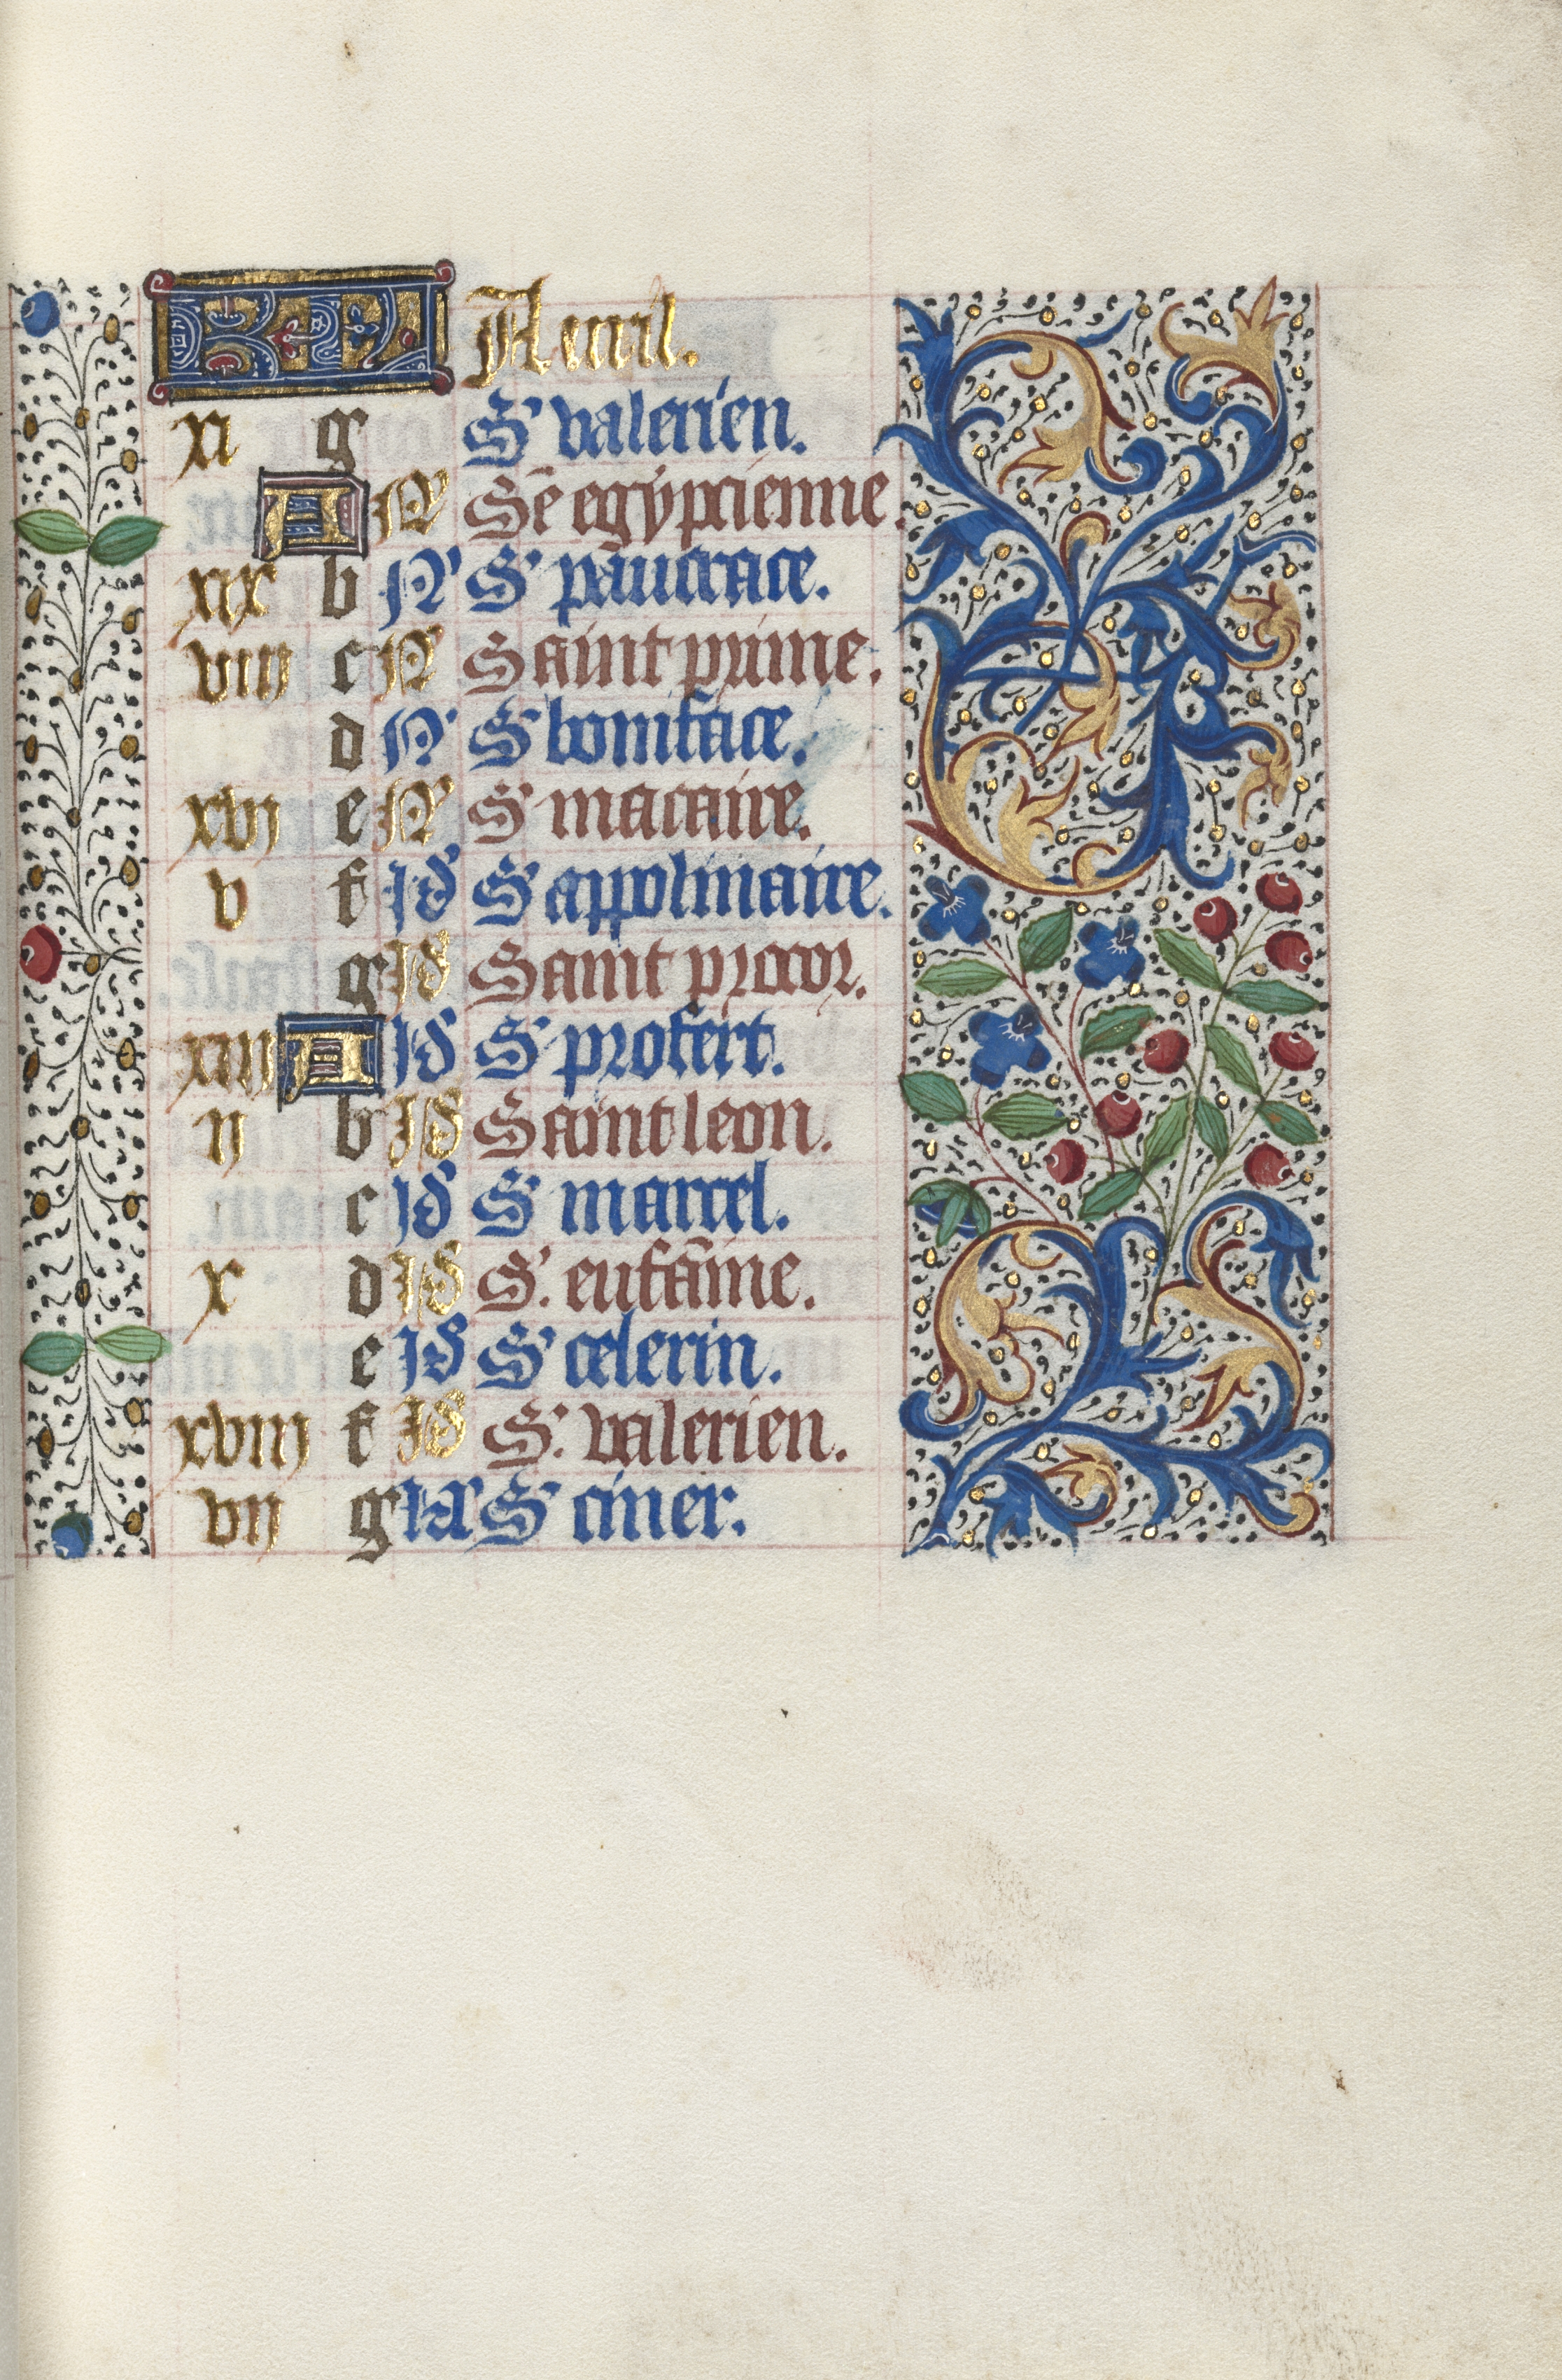 KL Auril.
xi g S' valerien.
A N' Sē egypcienne.
xix b N' S' pāucrace.
viii c N' Saint prime.
d N' S' boniface.
xvj e N' S' macaire.
v f Id S' appolinaire.
g Id Saint procor.
xiij A Id S' profert.
ij b Id Saint leon.
c Id S' marcel.
x d Id S. eufāmie.
e Id S' celerin.
xviij f Id S. valerien.
vij g kl' S' ciner.